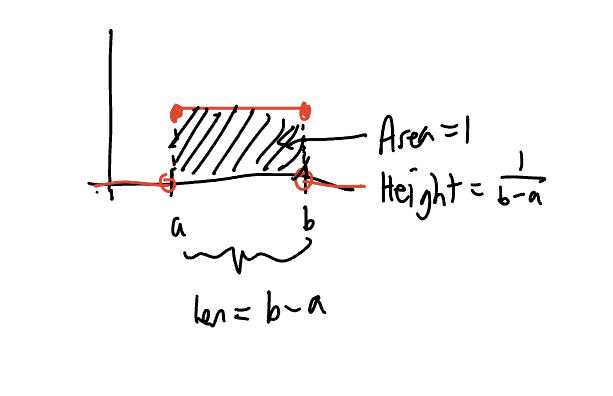 Area = 1
Height = 1/(b-a)
a
b
len = b - a